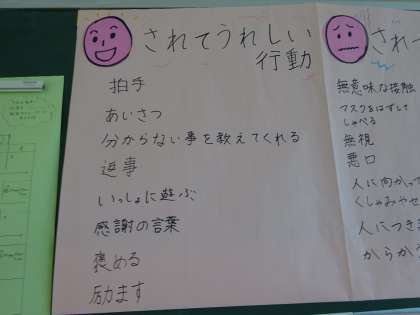 されてうれしい
行動
拍手
あいさつ
分からない事を教えてくれる
返事
いっしょに遊ぶ
感謝の言葉
褒める
励ます
され
無意味な接触
マスクをはずして
しゃべる
無視
悪口
人に向かって
くしゃみやせ
人につき
からか